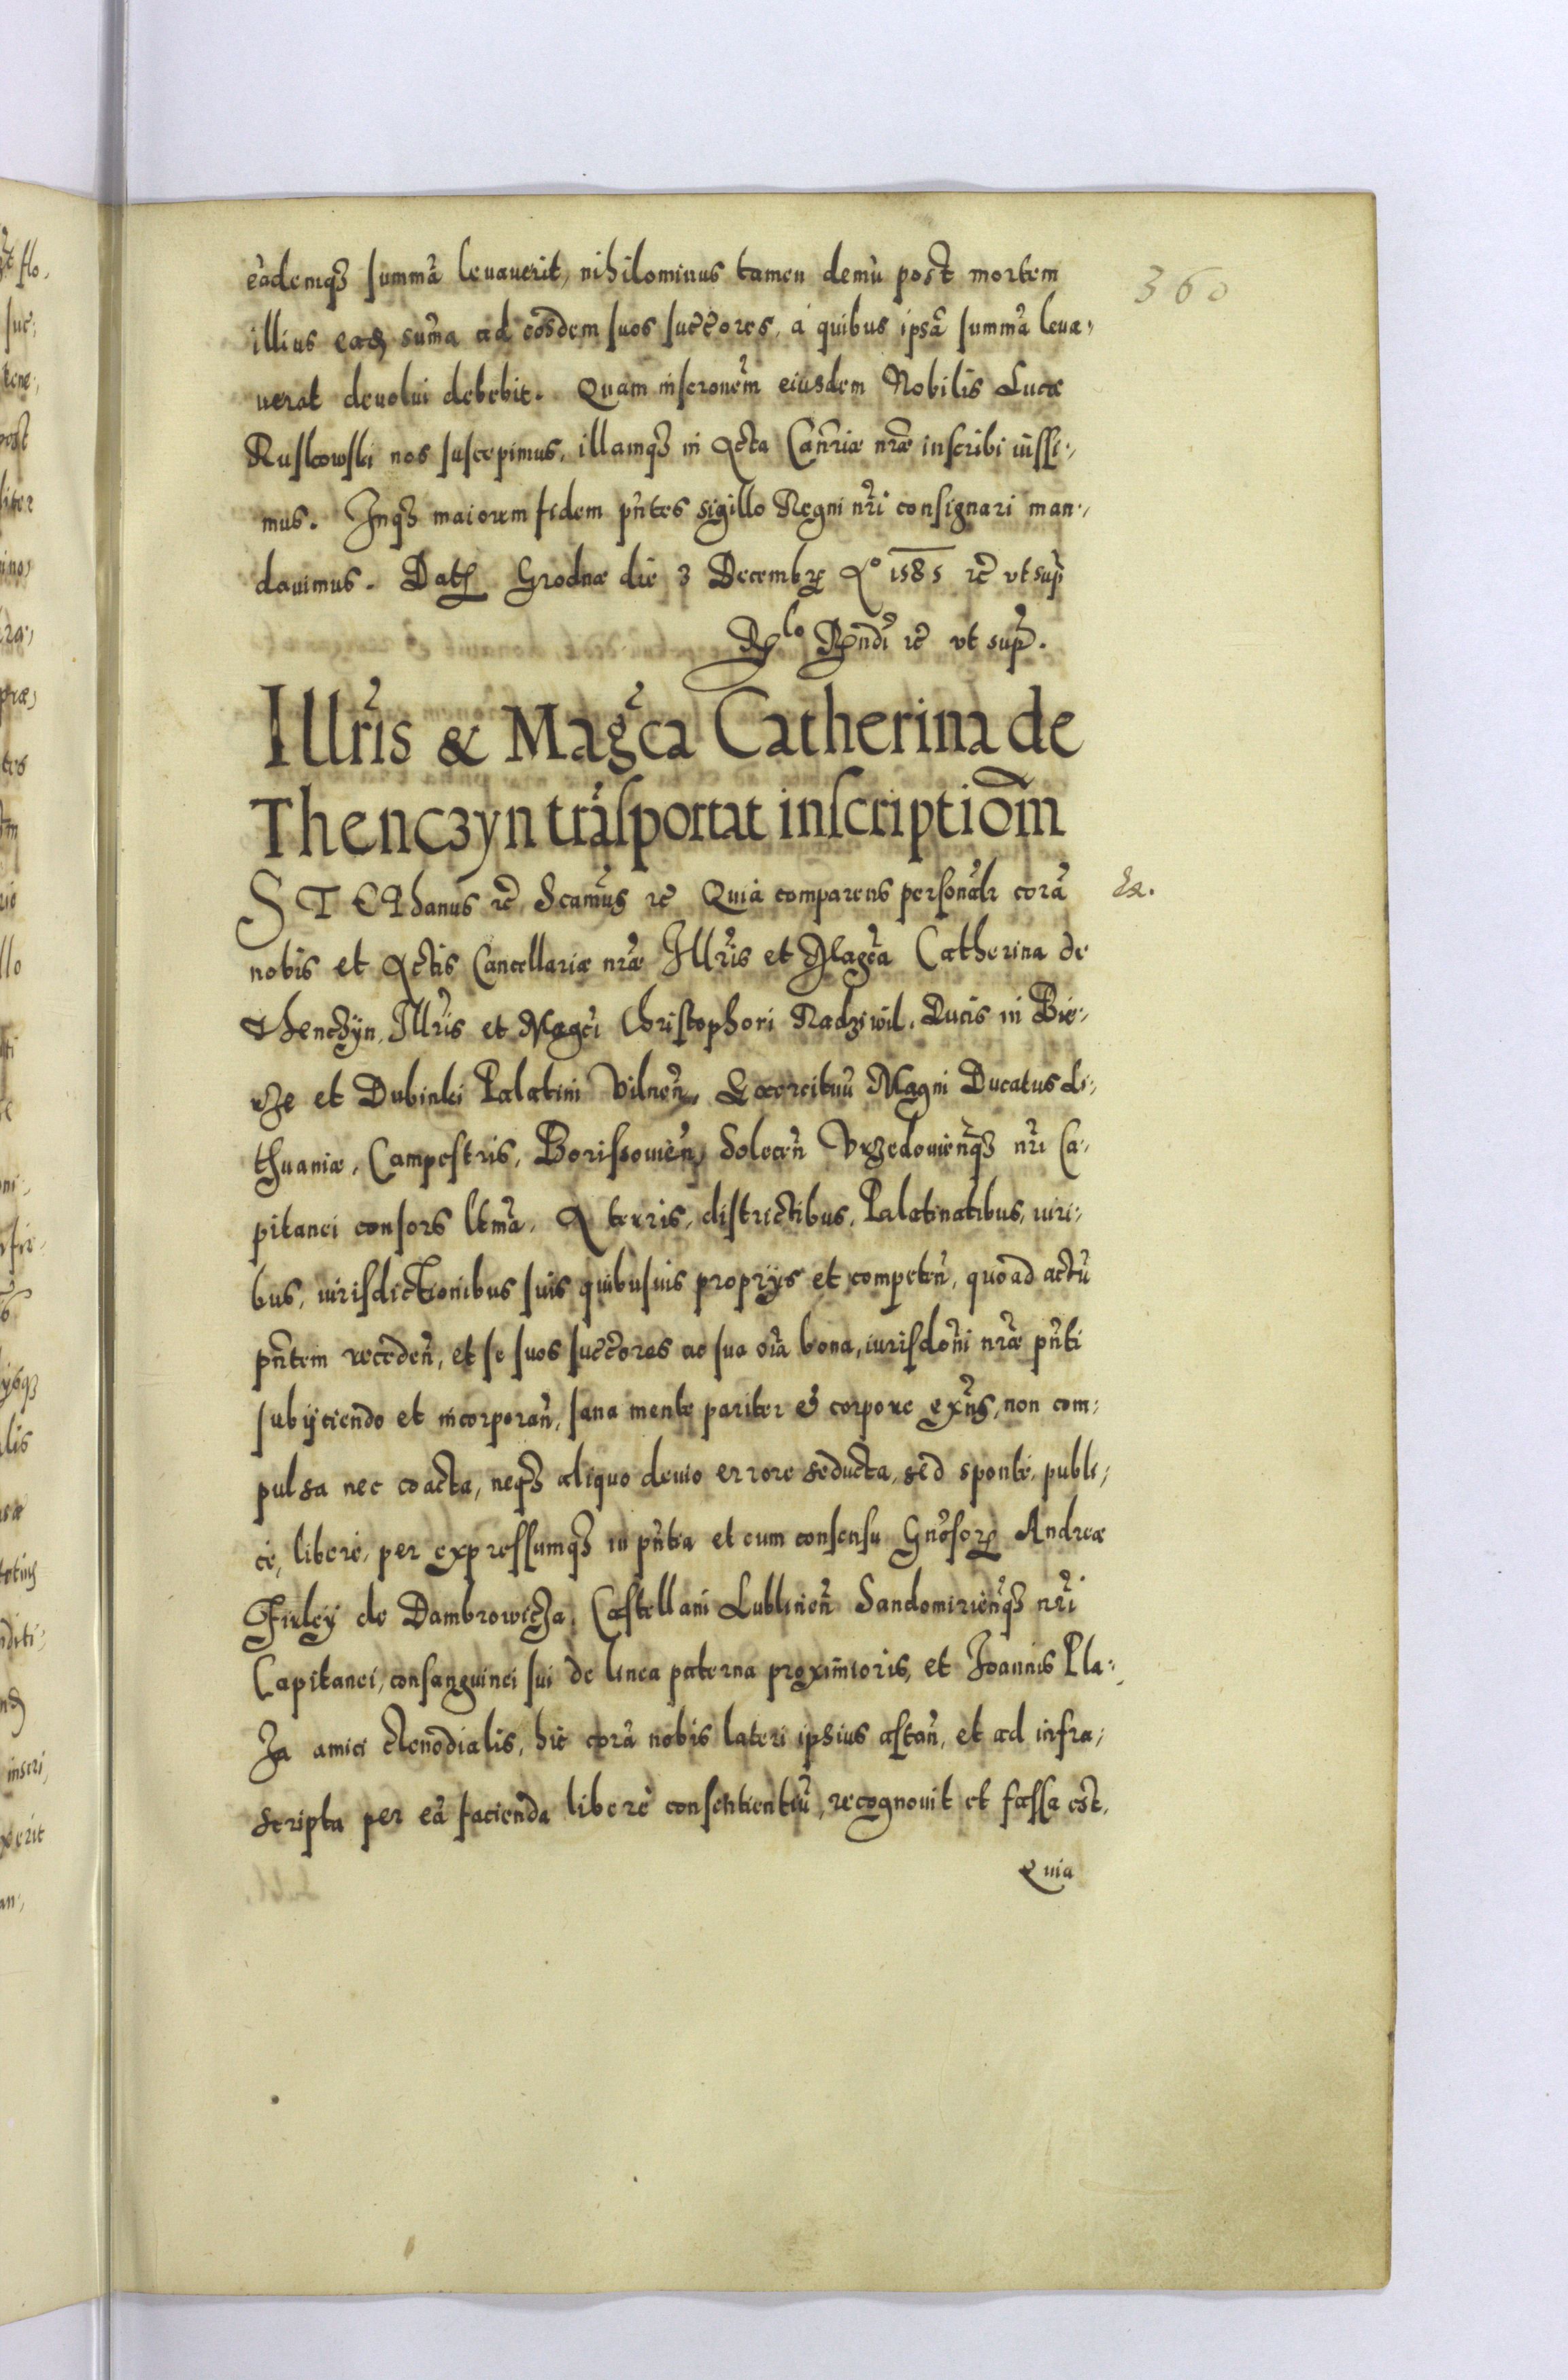 360
eãdemqȝ summã leuauerit, nihilominus tamen demũ post mortem
illius eadẽ sum̃a ad eosdem suos succ̃ores, à quibus ipsã summã leua-
uerat deuolui debebit. Quam inscronem̃ eiusdem Nobilis Lucæ
Ruskowski nos suscepimus, illamqȝ in Acta Canr̃iæ nr̃æ inscribi iussi-
mus. Inqȝ maiorem fidem pñtes sigillo Regni nr̃i consignari man-
dauimus. Datȝ Grodnæ die 3 Decembrȝ Aº 1585 etc̃ vt sup̃
Relo Rẽndi etc̃ vt sup̃.
Illr̃is & Magc̃a Catherina de
Thenczyn trãsportat inscriptiom̃
STEPhanus etc̃ Scam̃us etc̃ Quia comparens personãlr corã
nobis et Actis Cancellariæ nr̃æ Illr̃is et Magc̃a Catherina de
Thenczyn, Illr̃is et Magc̃i Christophori Radziwil, Ducis in Bir-
rze et Dubinki Palatini Vilneñ, Exercituũ Magni Ducatus Li-
thuaniæ, Campestris, Borissouieñ, Soleceñ Vrzedouieñqȝ nr̃i Ca-
pitanei consors ltm̃a, A terris, districtibus, Palatinatibus, iuri-
bus, iurisdictionibus suis quibusuis proprijs et competeñ, quoad actũ
pñtem recedeñ, et se suos succ̃ores ac sua oĩa bona, iurisdoñi nr̃æ pñti
subijciendo et incorporañ, sana mente pariter & corpore exñs, non com-
pulsa nec coacta, neqȝ aliquo deuio errore seducta, sed sponte, publi-
cè, liberè, per expressumqȝ in pñtia et cum consensu Gnõsorȝ Andreæ
Firleÿ de Dambrowicza, Castellani Lublineñ Sandomirieñqȝ nr̃i
Capitanei, consanguinei sui de linea paterna proximioris, et Joannis Pla-
za amici clenodialis, hic corã nobis lateri ipsius astañ, et ad infra-
scripta per eã facienda liberè consentientiũ, recognouit et fassa est,
Quia